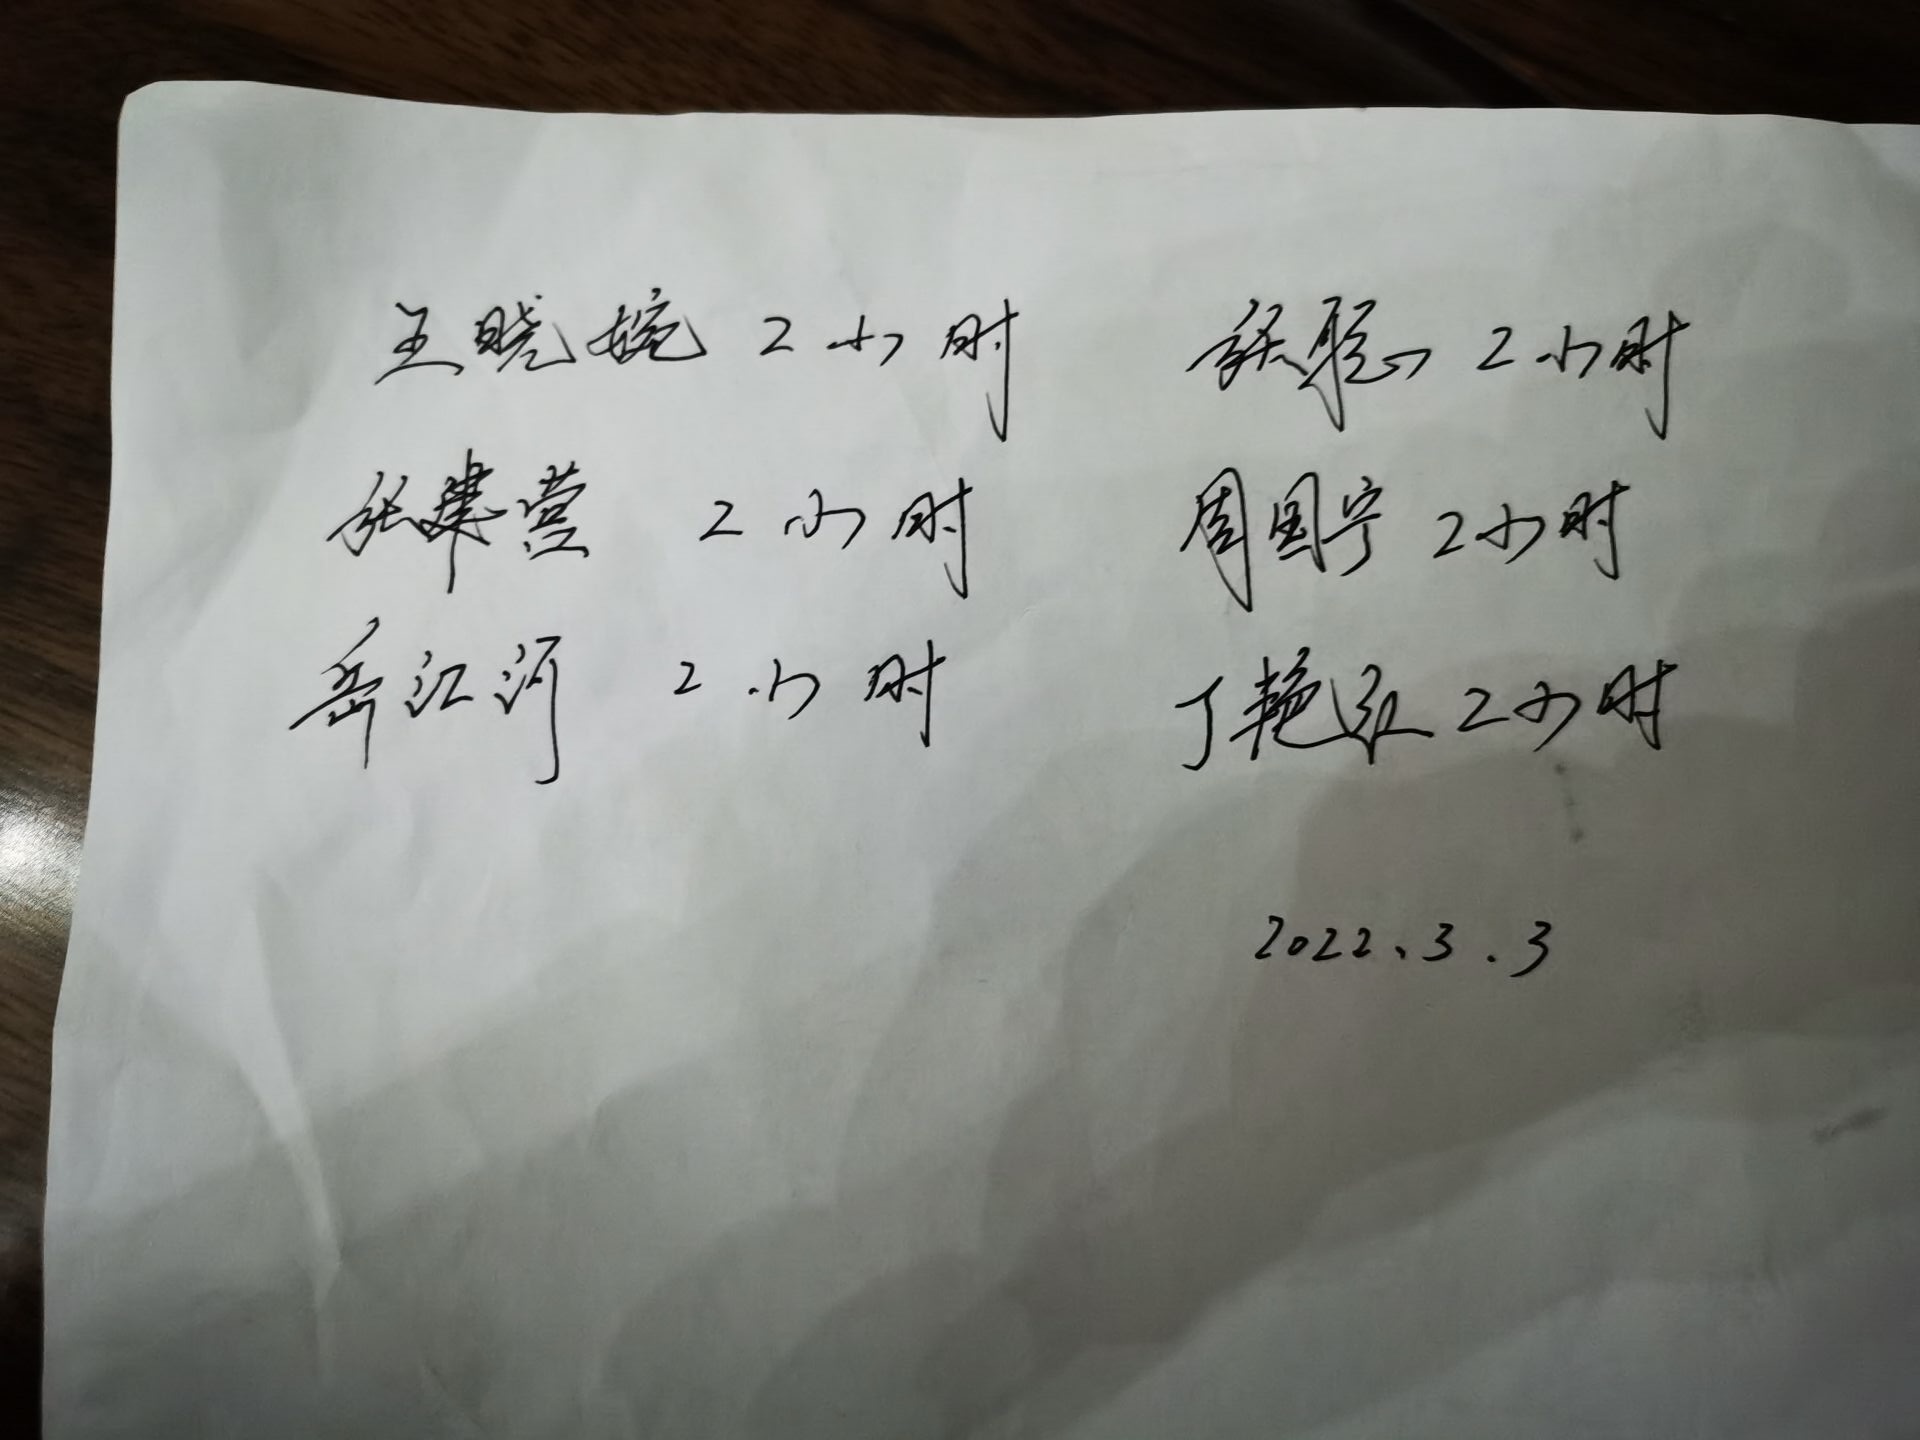 王晓婉 2小时 张聪 2小时
张建营 2小时 周国宁 2小时
岳江河 2小时 丁艳 2小时
2022.3.3